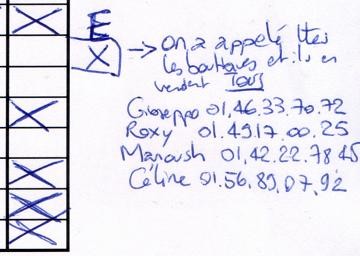 E
X
→ On a appelé ttes
les boutiques et ils en
vendent Tous
Giuseppo 01.46.33.70.72
Roxy 01.4917.00.25
Manoush 01.42.22.78 45
Céline 01.56.89.07.92